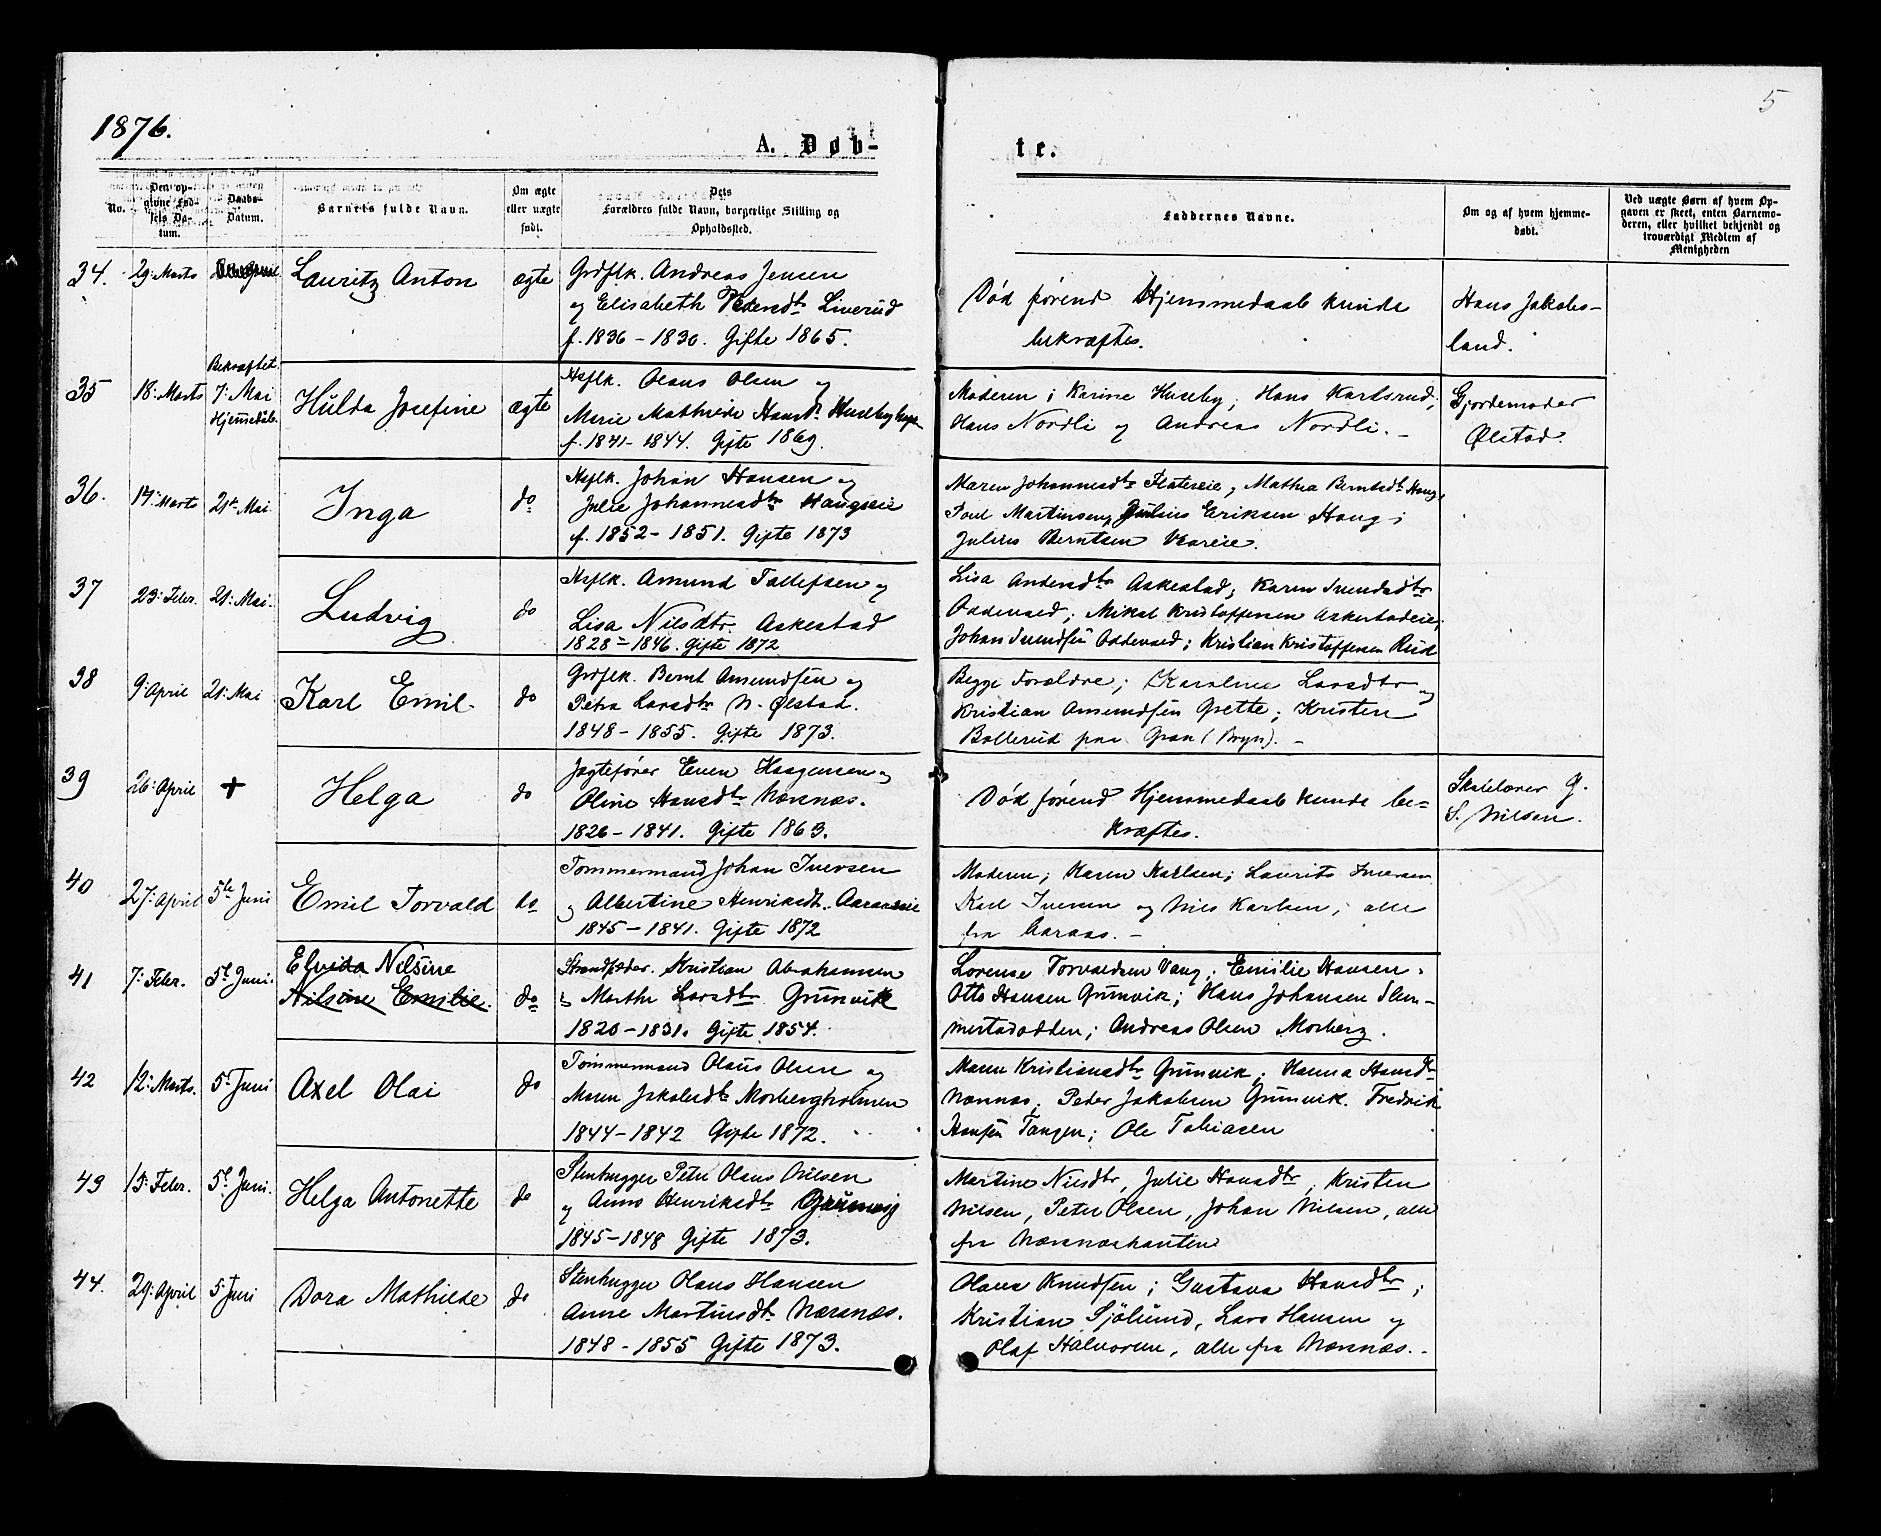 1876.
5
A. Døb-
te.
No.
Den op-
givne Fød-
sels Da-
tum.
Daabs-
Datum.
Barnets fulde Navn.
Om ægte
eller uægte
født.
Dets
Forældres fulde Navn, borgerlige Stilling og
Opholdssted.
Faddernes Navne.
Om og af hvem hjemme-
døbt.
Ved uægte Børn af hvem Op-
gaven er skeet, enten Barnemo-
deren, eller hvilket bekjendt og
troværdigt Medlem af
Menigheden
34.
29: Marts
Lauritz Anton
ægte
Grdflk. Andreas Jensen
og Elisabeth Pedersdtr Liverud
f. 1836 - 1830. Gifte 1865.
Død førend Hjemmedaab kunde
bekræftes.
Hans Jakobs-
land.
35
18: Marts
Bekræftet
7: Mai
Hjemmedåb.
Hulda Josefine
ægte
Hsflk. Olaus Olsen og
Marie Mathilde Hansdtr Huseby
f. 1841 - 1844. Gifte 1869.
Moderen; Karine Huseby; Hans Karlsrud;
Hans Nordli og Andreas Nordli. -
Gjordemoder
Ølstad.
36.
17: Marts
21de Mai
Inga
do
Hsflk. Johan Hansen og
Julie Johannesdtr Haugseie
f. 1852 - 1851. Gifte 1873
Maren Johannesdtr; Mathea Berntsdtr Haug;
Poul Martinsen, Julius Eriksen Haug;
Julius Berntsen
37
23: Febr.
21: Mai.
Ludvig
do
Hsflk. Amund Tollefsen og
Lisa Nilsdtr. Askestad
1828 - 1846. Gifte 1872
Lisa Andersdtr Askestad; Karen Svendsdtr
Oddevald; Mikal Kristoffersen Askestadeie;
Johan Svendsen Oddevald; Kristian Kristoffersen Rud
38
9: April
21: Mai
Karl Emil.
do
Grdflk. Bernt Amundsen og
Petra Larsdtr N. Ølstad.
1848 - 1855. Gifte 1873.
Begge Forældre; Karoline Larsdtr og
Kristian Amundsen Grette; Kristen
Bollerud paa Gran (Bryn). -
39
26: April
+
Helga
do
Jægtefører Even Haagensen og
Oline Hansdtr Nærsnæs.
1826 - 1841. Gifte 1863.
Død førend Hjemmedaab kunde be-
kræftes.
Skolelærer G.
S. Nilsen.
40
27: April
5te Juni
Emil Torvald
do
Tømmermand Johan Iversen
og Albertine Henriksdtr. Aaraaseie
1845 - 1841. Gifte 1872
Moderen; Karen Karlsen; Laurits Iversen
Karl Iversen og Nils Karlsen; alle
fra Aaraas. -
41
7: Febr.
5te Juni.
Elvida Nilsine
Nilsine Emilie.
do
Strandsidder. Kristian Abrahamsen
og Marthe Larsdtr Grunvik
1820 - 1831. Gifte 1854.
Lorense Torvaldsen Vang; Emilie Hansen.
Otto Hansen Grunvik; Hans Johansen Slem-
mestadodden; Andreas Olsen Morberg.
42
12: Marts.
5: Juni
Axel Olai
do
Tømmermand Olaus Olsen og
Maren Jakobsdtr Morbergholmen
1844 - 1842 Gifte 1872.
Maren Kristiansdtr Grunvik; Hanna Hansdtr
Nærsnæs, Peder Jakobsen Grunvik. Fredrik
Hansen Tangen; Ole Tobiasen
43
13: Febr.
5te Juni.
Helga Antonette
do
Stenhugger Peter Olaus Nilsen
og Anne Henriksdtr Grunvig
1845 - 1848 Gifte 1873.
Martine Nilsdtr, Julie Hansdtr, Kristen
Nilsen, Peter Olsen, Johan Nilsen, alle
fra Nærsnæskanten
44.
29: April
5: Juni
Dora Mathilde
do
Stenhugger Olaus Hansen
Anne Martinsdtr Nærsnæs.
1848 - 1855 Gifte 1873.
Olava Knudsen; Gustava Hansdtr;
Kristian Sjølund, Lars Hansen og
Olaf Halvorsen, alle fra Nærsnæs. -